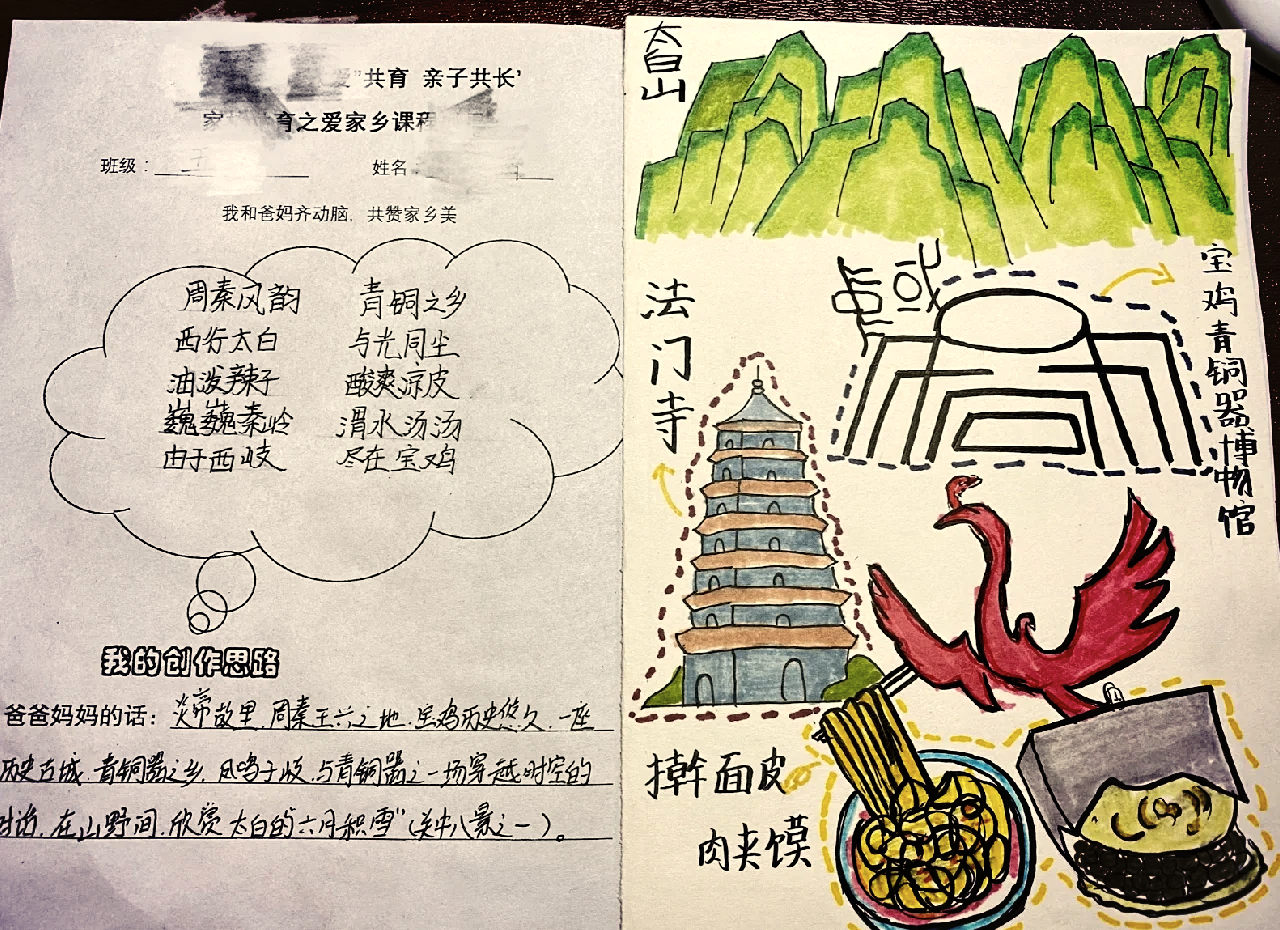 共育 亲子共长'
育之爱家乡课程
班级：
姓名
我和爸妈齐动脑，共赞家乡美
周秦风韵 青铜之乡
西行太白 与光同尘
油泼辣子 酸爽凉皮
巍巍秦岭 渭水汤汤
由于西岐 尽在宝鸡
我的创作思路
爸爸妈妈的话：炎帝故里，周秦王六之地，宝鸡历史悠久，一座
历史古城，青铜器之乡，凤鸣于岐，与青铜器之一场穿越时空的
对话，在山野间，欣赏太白的六月积雪"（关中八景之一）。
太白山
法门寺
宝鸡青铜器博物馆
擀面皮
肉夹馍